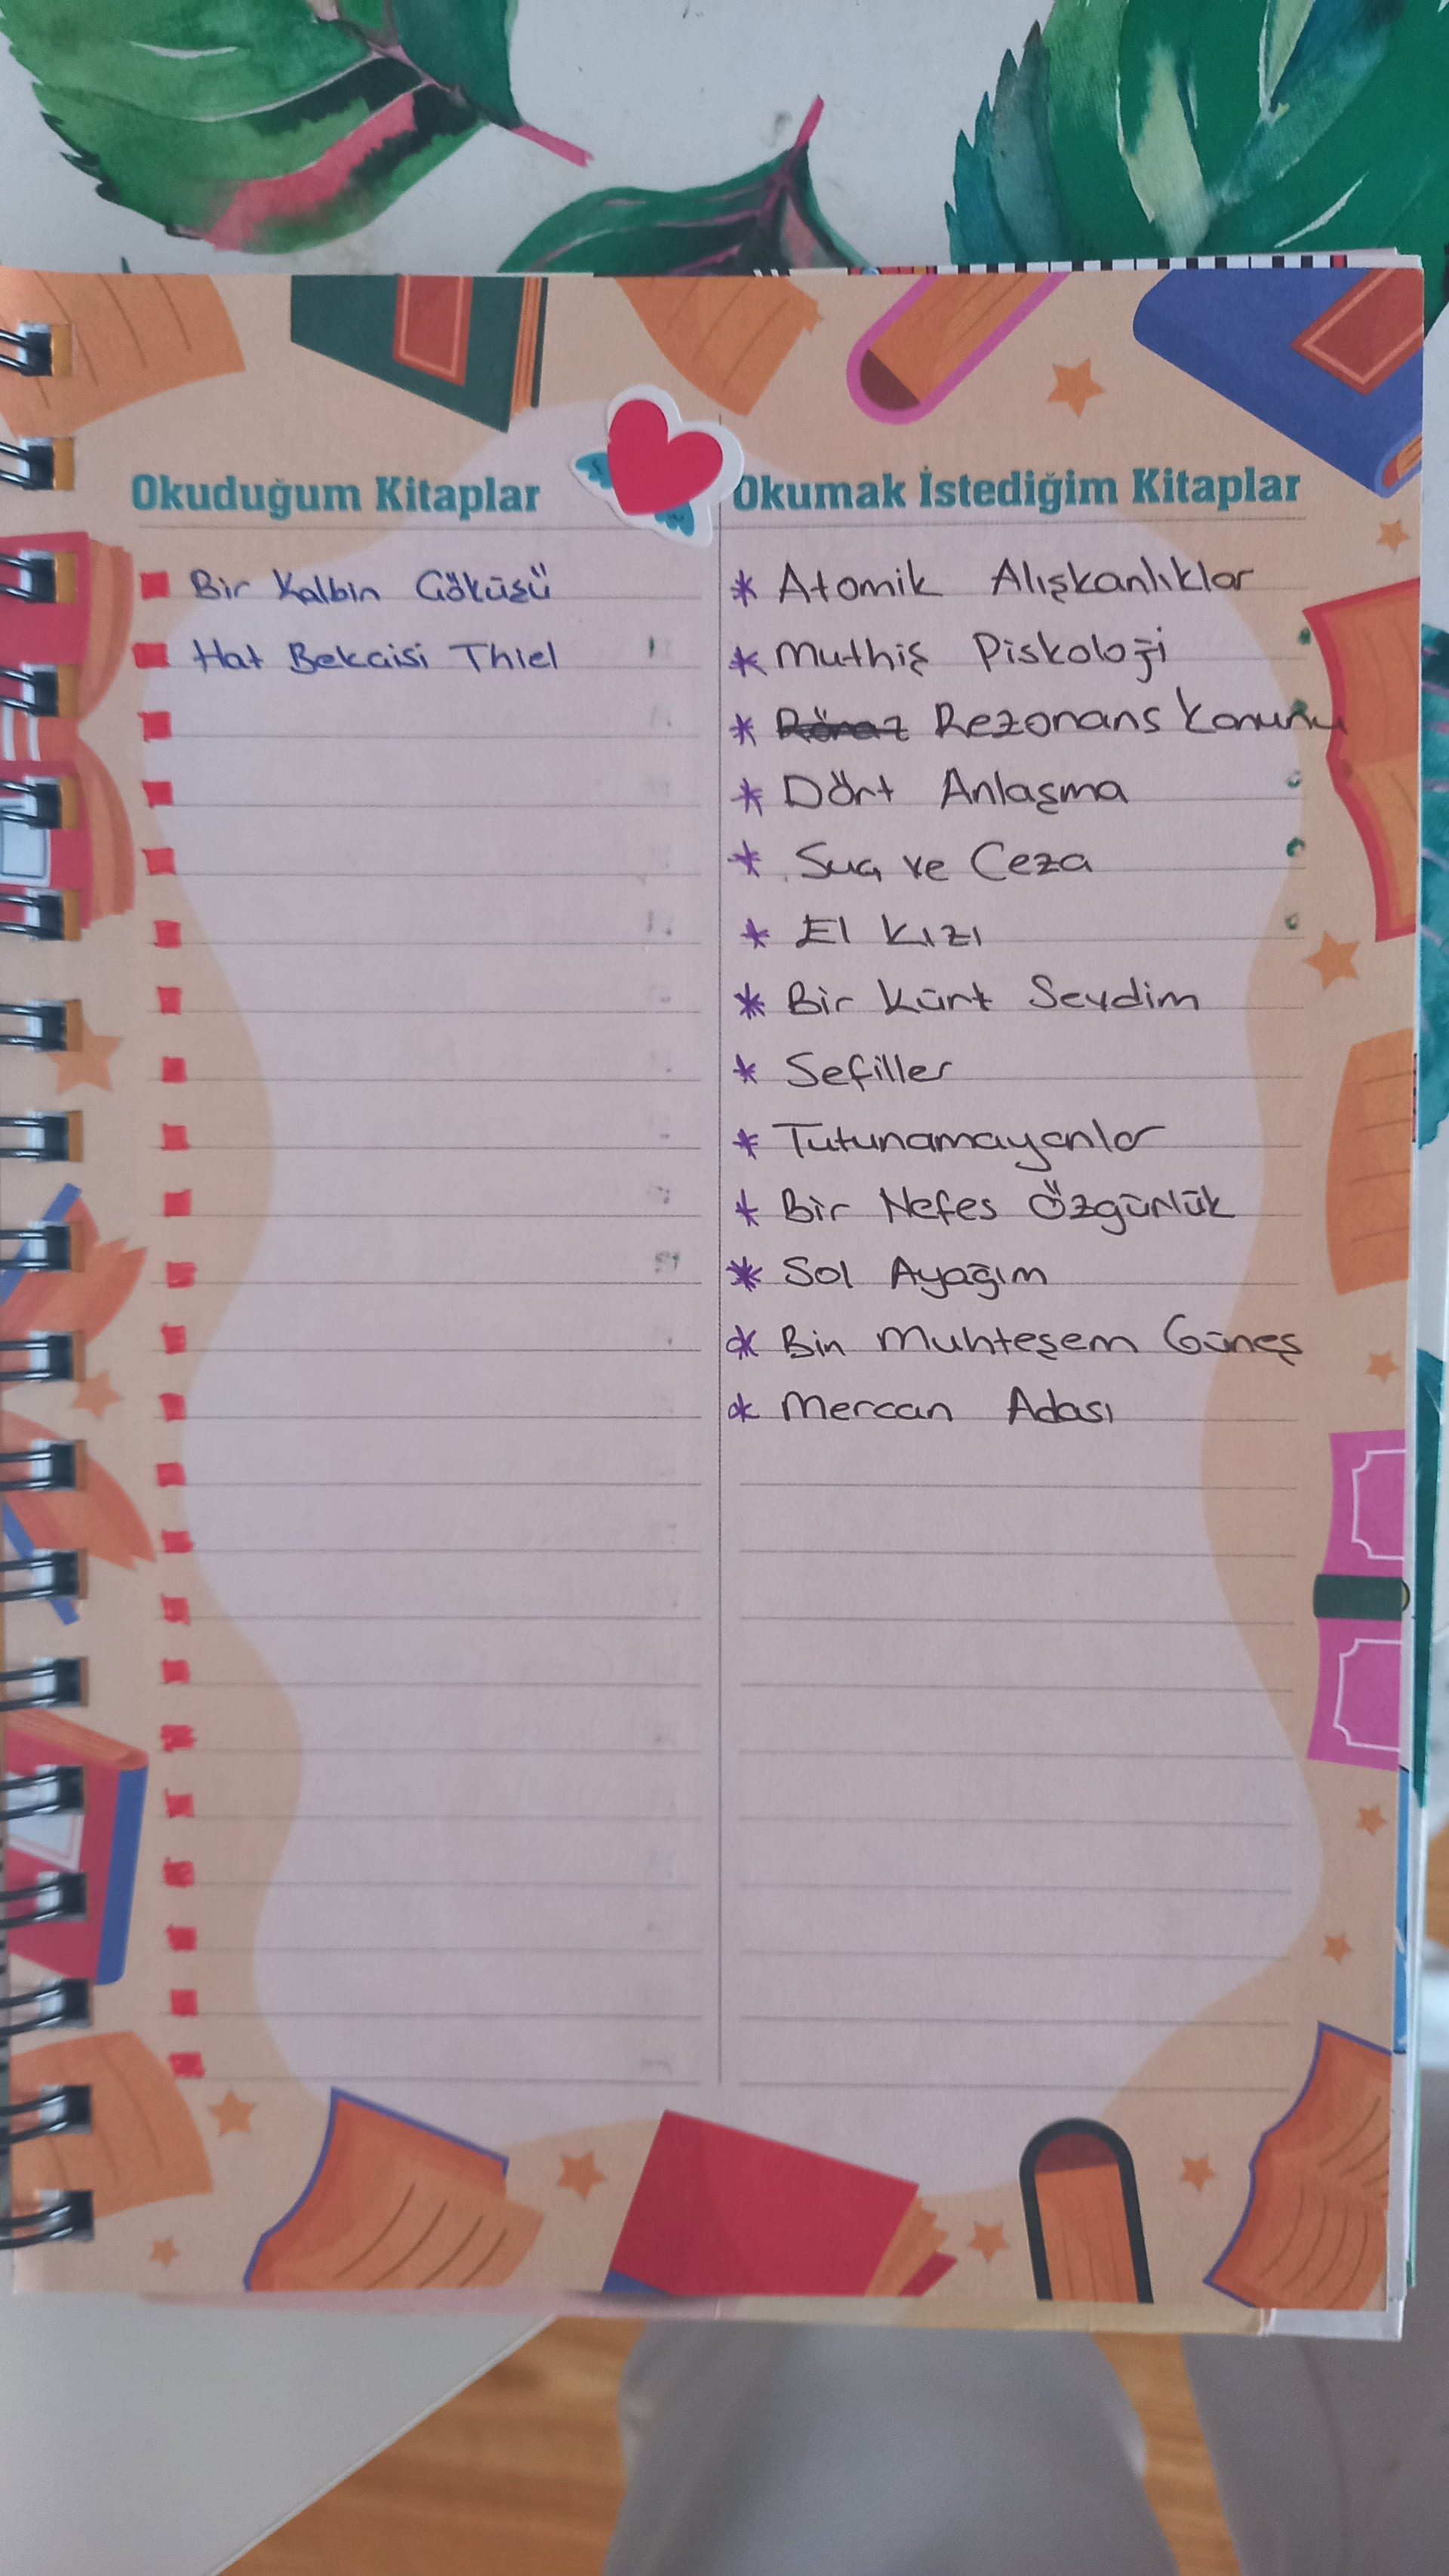 Okuduğum Kitaplar
Bir Kalbin Çöküşü
Hat Bekcisi Thiel
Okumak İstediğim Kitaplar
* Atomik Alışkanlıklar
* Muthiş Piskoloji
* Rezonans Kanunu
* Dört Anlaşma
* Suç ve Ceza
* El Kızı
* Bir Kürt Sevdim
* Sefiller
* Tutunamayanlar
* Bir Nefes Özgürlük
* Sol Ayağım
* Bin Muhteşem Güneş
* Mercan Adası